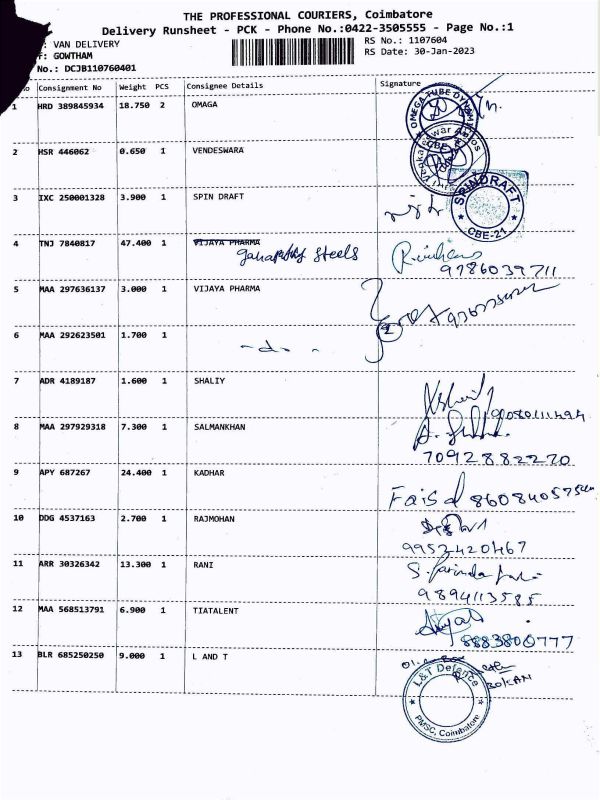 THE PROFESSIONAL COURIERS, Coimbatore
Delivery Runsheet - PCK - Phone No.:0422-3505555 - Page No.:1
: VAN DELIVERY RS No.: 1107604
F: GOWTHAM RS Date: 30-Jan-2023
No.: DCJB110760401
No Consignment No Weight PCS Consignee Details Signature
1 HRD 389845934 18.750 2 OMAGA
OMEGA TUBE
2 MSR 446062 0.650 1 VENDESWARA
CBE
3 IXC 250001328 3.900 1 SPIN DRAFT
SPINDRAFT
CBE-21
4 TNJ 7840817 47.400 1 VIJAYA PHARMA
steels
9786039711
5 MAA 297636137 3.000 1 VIJAYA PHARMA
6 MAA 292623501 1.700 1
-do-
2
7 ADR 4189187 1.600 1 SHALIY
8 MAA 297929318 7.300 1 SALMANKHAN
7092882270
9 APY 687267 24.400 1 KADHAR
Faisd
10 DDG 4537163 2.700 1 RAJMOHAN
9952420467
11 ARR 30326342 13.300 1 RANI
9894113585
12 MAA 568513791 6.900 1 TIATALENT
8883800777
13 BLR 685250250 9.000 1 L AND T
L&T Defence
PMSC, Coimbatore